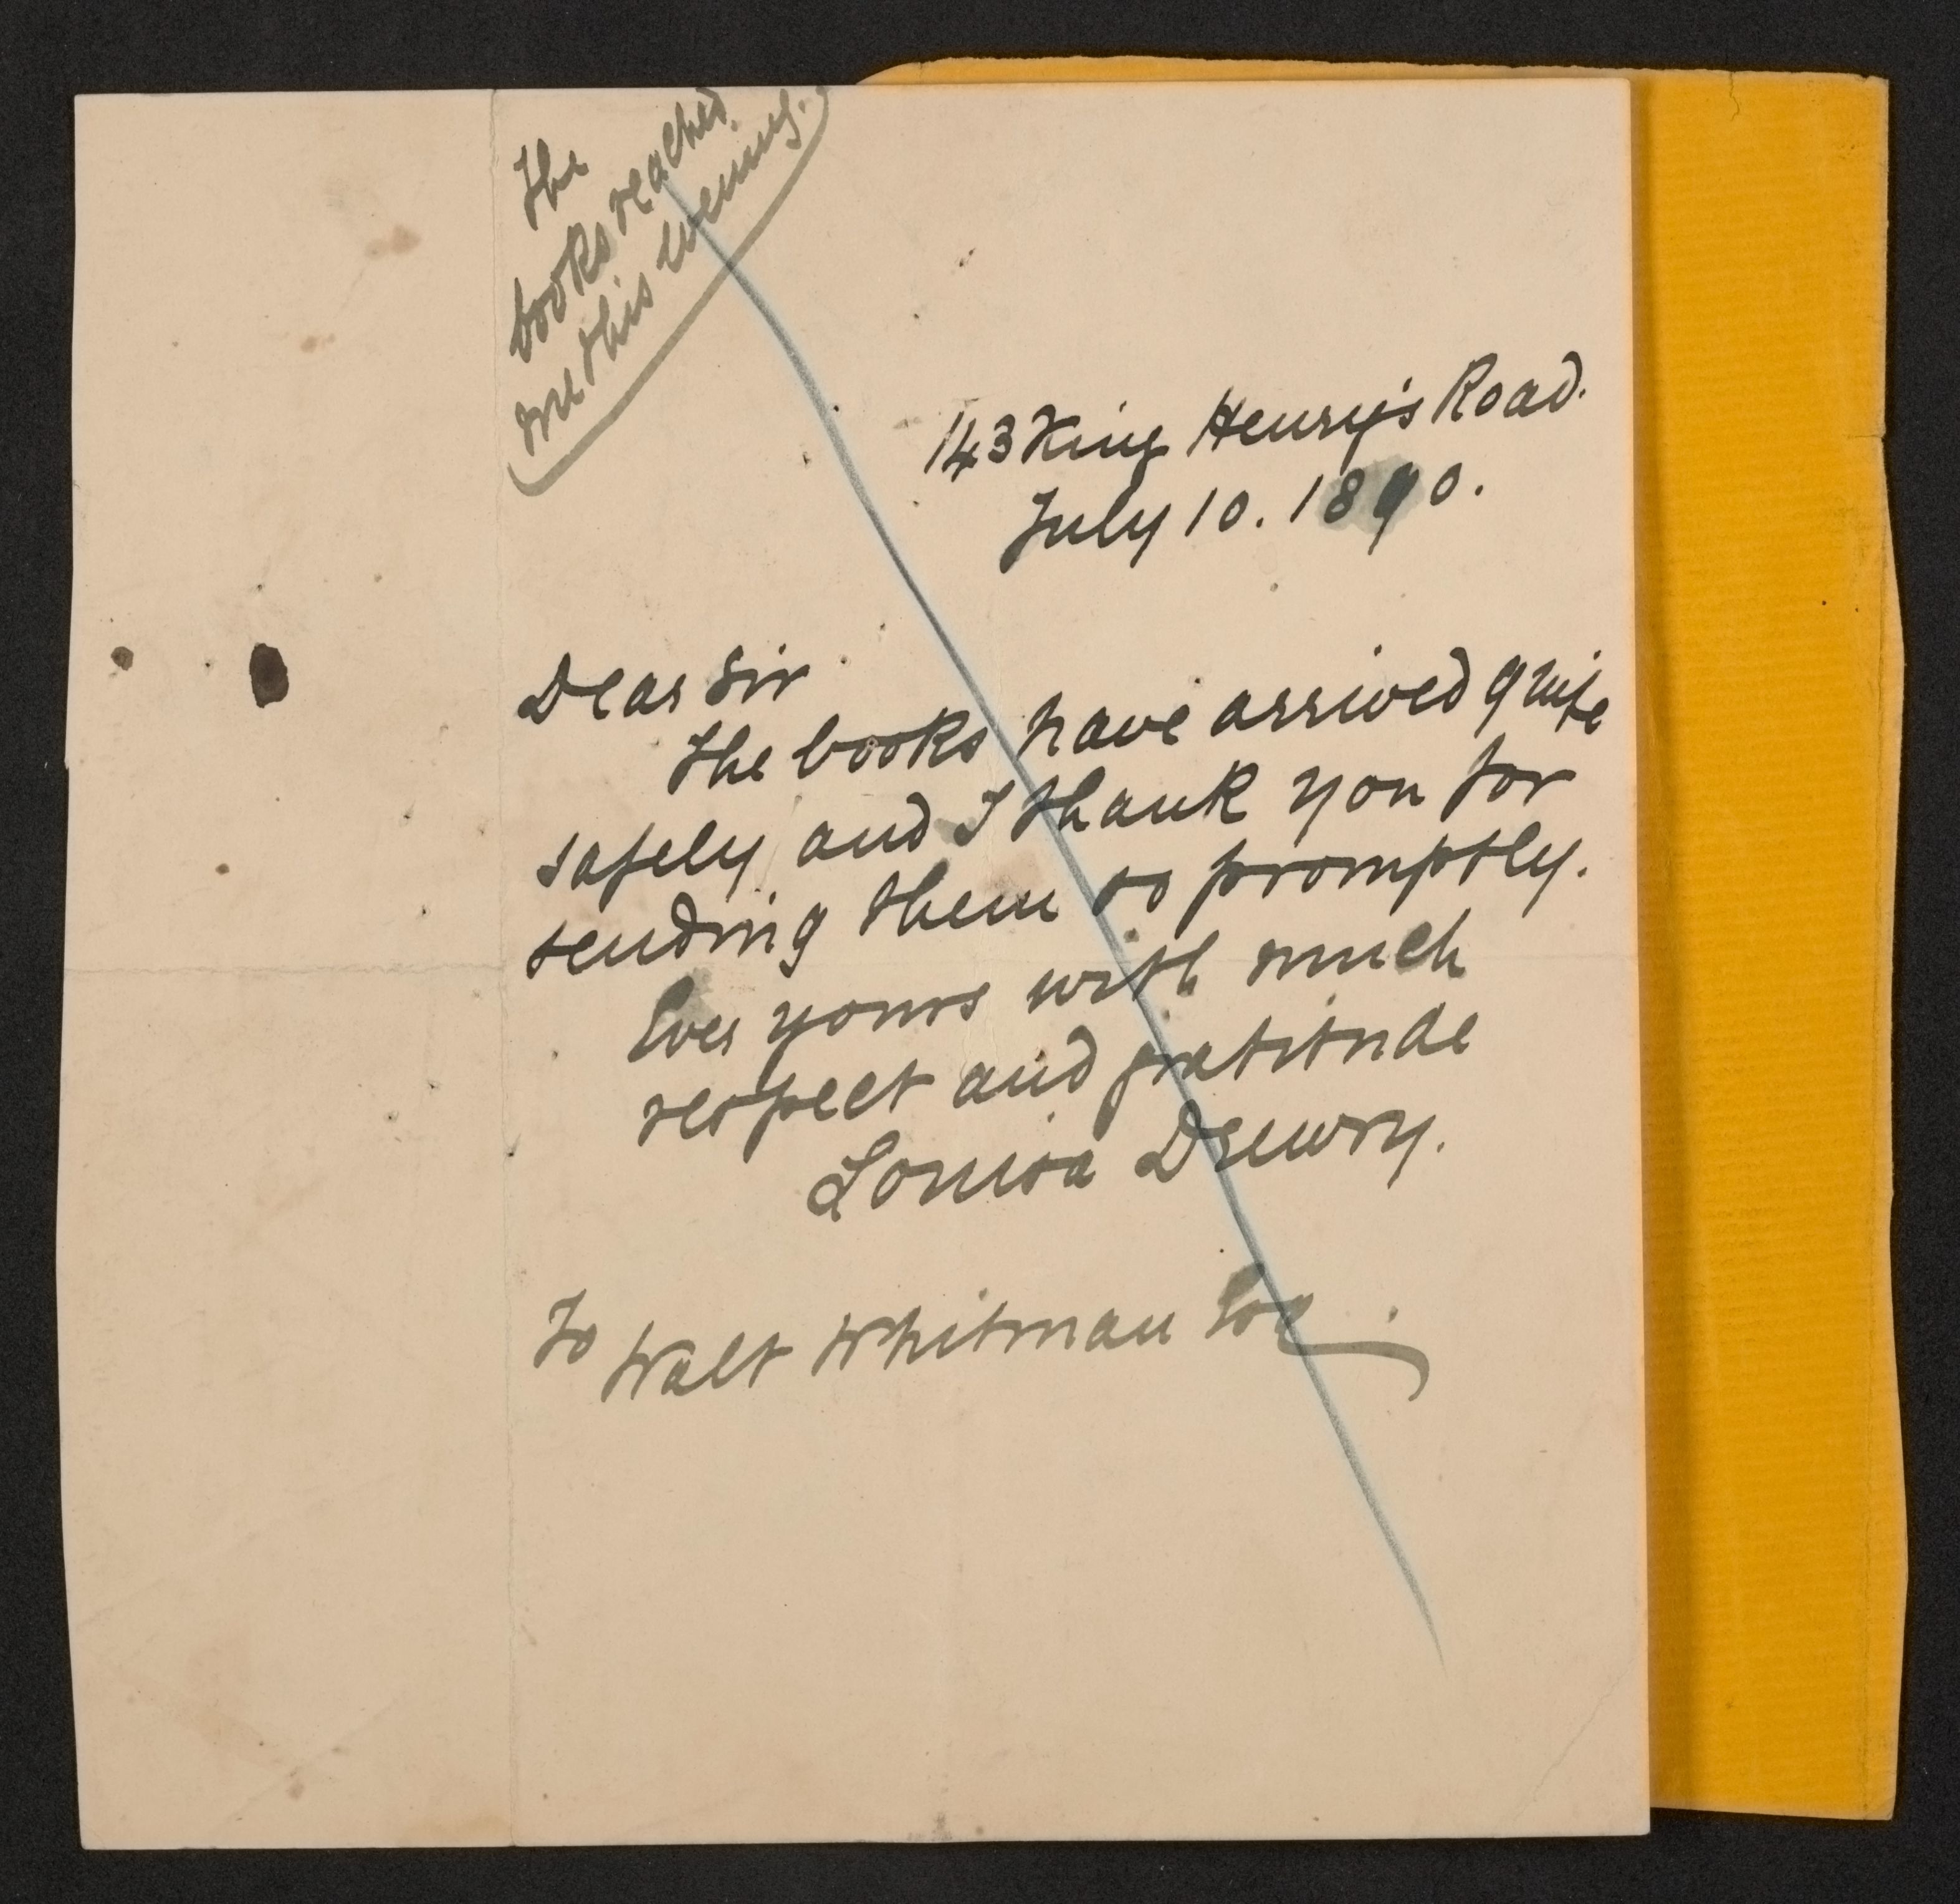 The
books reached
me this evening.
143 King Henry's Road.
July 10. 1890.
Dear Sir
The books have arrived quite
safely and I thank you for
sending them so promptly.
Ever yours with much
respect and gratitude
Louisa Drewry.
To Walt Whitman Esq.